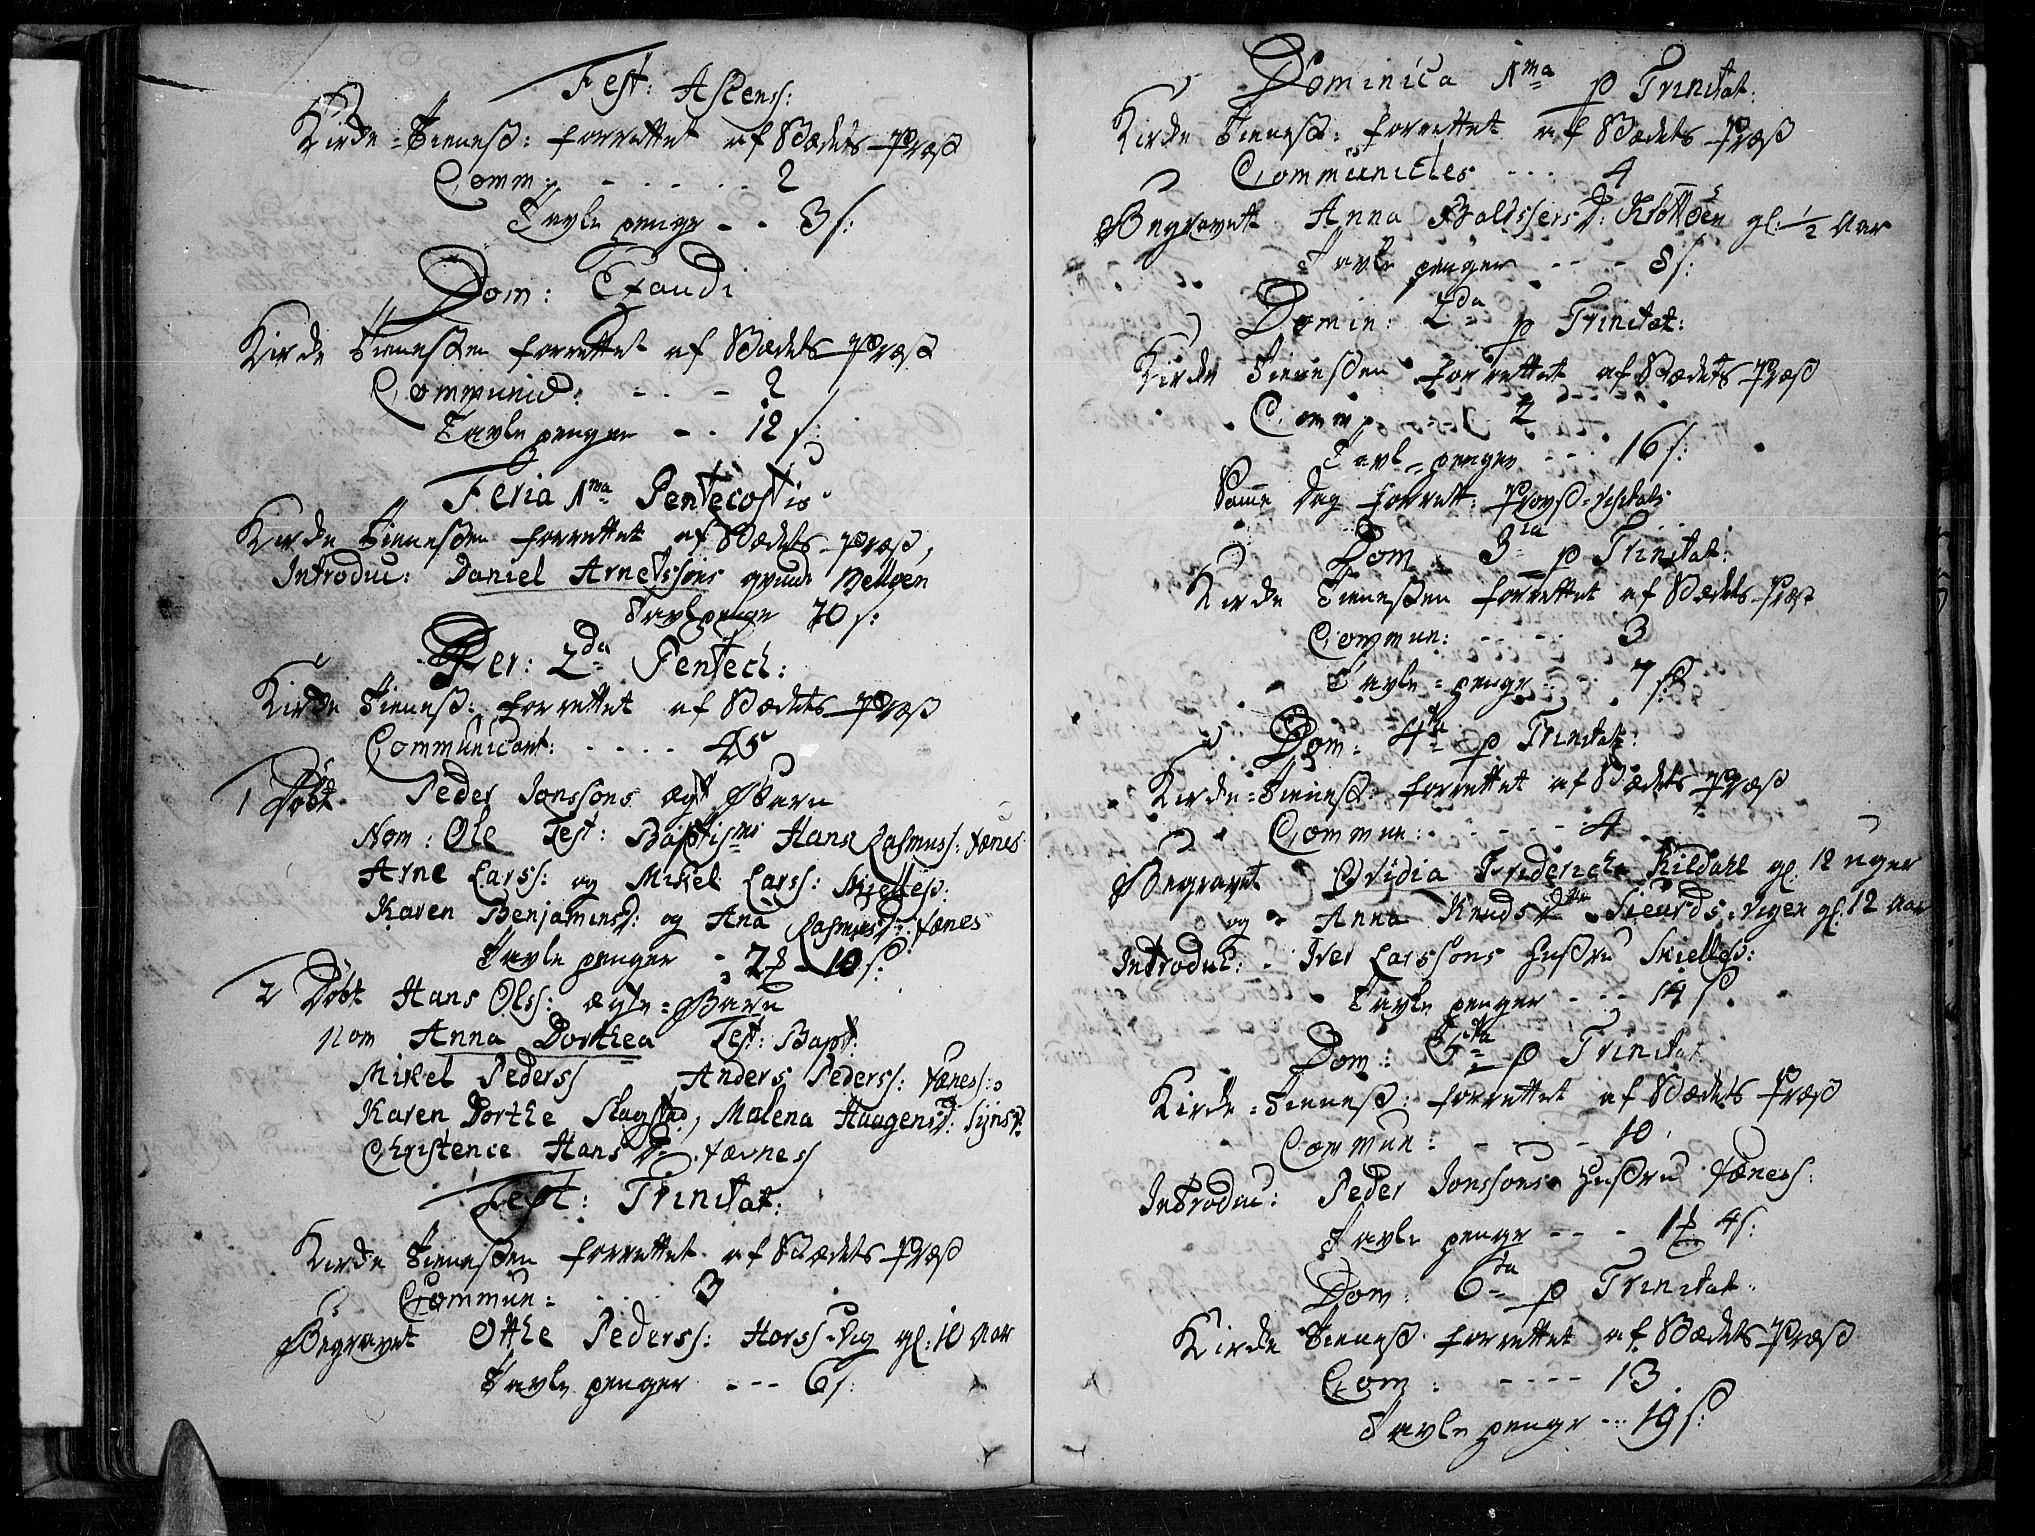 Fest: Ascens:
Kirche-Tienest: forrettet af Stædets Præst
Comm: - - - - - 2
Tavle penge - - 8 s:
Dom: Exaudi
Kirche Tienesten forrettet af Stædets Præst
Communic: - - - 2
Tavle penger - - 12 s:
Feria 1ma Pentecostis
Kirche Tienesten forrettet af Stædets Præst,
Introduc: Daniel Arnetssons qvinde
Tavlpenge 20 s:
Fer: 2da Pentec:
Kirche Tienest: forrettet af Stædets Præst
Communicant: - - - - 45
1 Døbt Peder Jonssons ægt Barn
Nom: Ole Test: Baptismi Hans Rasmuss: Fænes
Arne Larss: og Mikel Larss:
Karen Benjaminsd: og Ana Rasmusd: Fænes
Tavle penger - 2 - 10 s:
2 Døbt Hans Olss: ægte-Barn
Nom Anna Dorthea Test: Bapt:
Mikel Pederss Anders Pederss: Fæness:
Karen Dorthe Slagstad, Malena Haagensd:
Christence Hansd: Fævness
Fest: Trinitat:
Kirche Tienesten forrettet af Stædets Præst
Commun: - - - - 3
Begravet Otthe Pederss: Horss-Vig gl: 10 Aar
Tavle penger - - - 6 s:
Dominica 1ma p Trinitat:
Kirche Tienest: forrettet af Stædets Præst
- - - 4
Begravet Anna gl: 1/2 Aar
Tavle penger - - - 8 s:
Domin: 2da p Trinitat:
Kirche Tienesten forrettet af Stædets Præst
Comm: 2
Tavle-penger - - - 16 s:
Samme Dag forrett: Provst-Visitats
Dom: 3tia p Trinitat:
Kirche Tienesten forrettet af Stædets Præst
Commun: - - - - 3
Tavle-penge - - - 7 s:
Dom: 4ta p Trinitat:
Kirche-Tienest: forrettet af Stædets Præst
Commun: - - - - - 4
Begravet Ovidia Fridericha Kildahl gl: 12 uger
og Anna Knudsdtr gl: 12 Aar
Introduc: Iver Larssons Hustru
Tavle penger - - - 14 s.
Dom: 5ta p Trinitat
Kirche-Tienest: forrettet af Stædets Præst
Commun: - - - - 10.
Introduc: Peder Jonssons Hustru Fæness:
Tavle penge - - - 1 4 s:
Dom: 6ta p Trinitat:
Kirche Tienest forrettet af Stædets Præst
Com: - - - - 13
Tavle penge - - - 19 s: